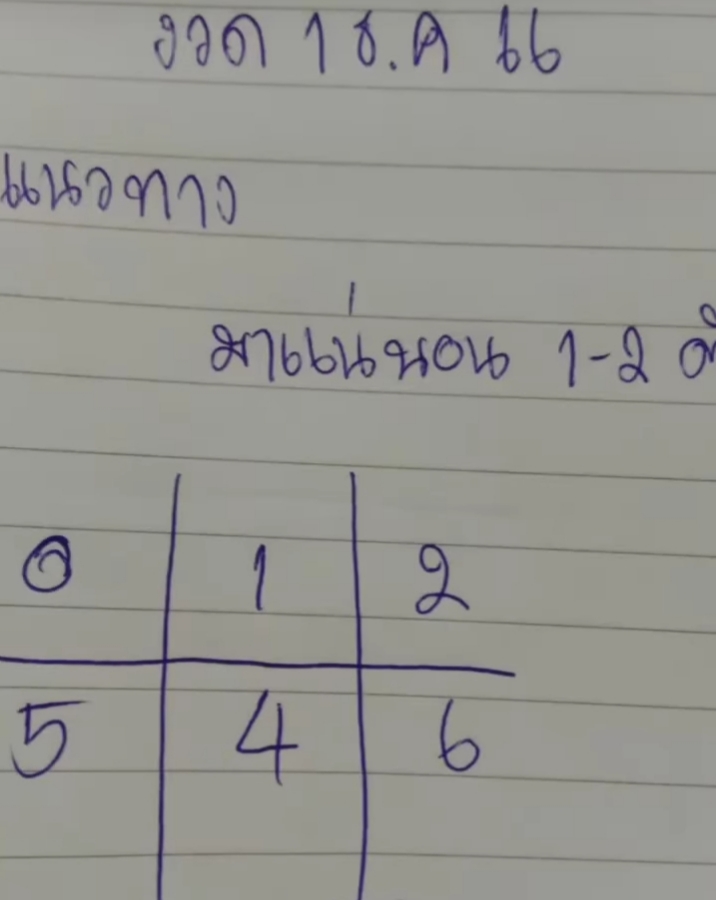 งวด 1 ธ.ค 66
แนวทาง
มาแน่นอน 1-2
0 1 2
5 4 6